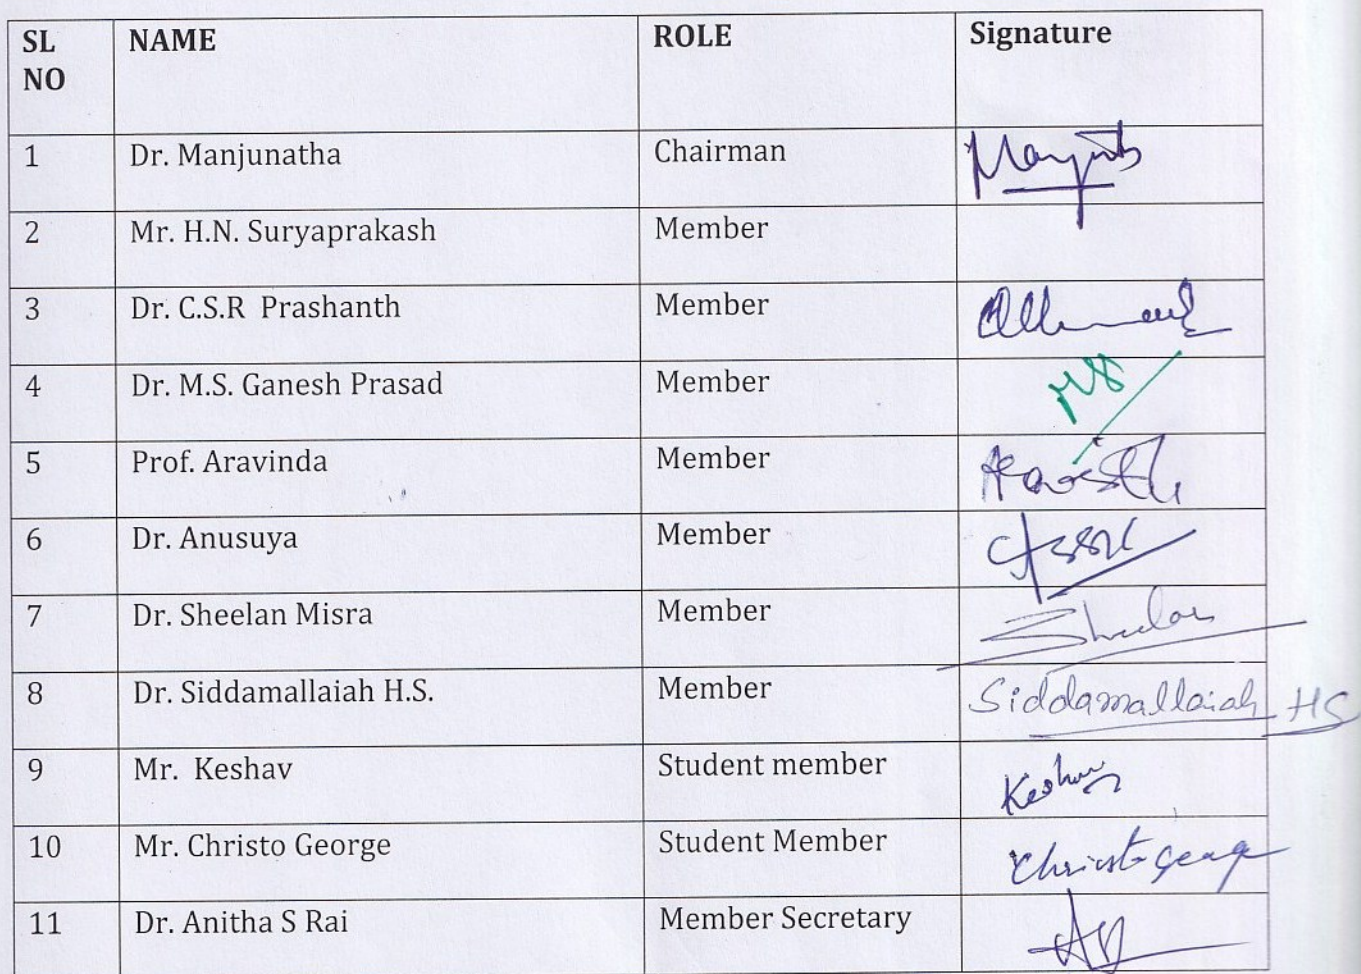 SL NO NAME ROLE Signature
1 Dr. Manjunatha Chairman
2 Mr. H.N. Suryaprakash Member
3 Dr. C.S.R Prashanth Member
4 Dr. M.S. Ganesh Prasad Member
5 Prof. Aravinda Member
6 Dr. Anusuya Member
7 Dr. Sheelan Misra Member Sheelan
8 Dr. Siddamallaiah H.S. Member Siddamallaiah HS
9 Mr. Keshav Student member Keshav
10 Mr. Christo George Student Member Christo George
11 Dr. Anitha S Rai Member Secretary